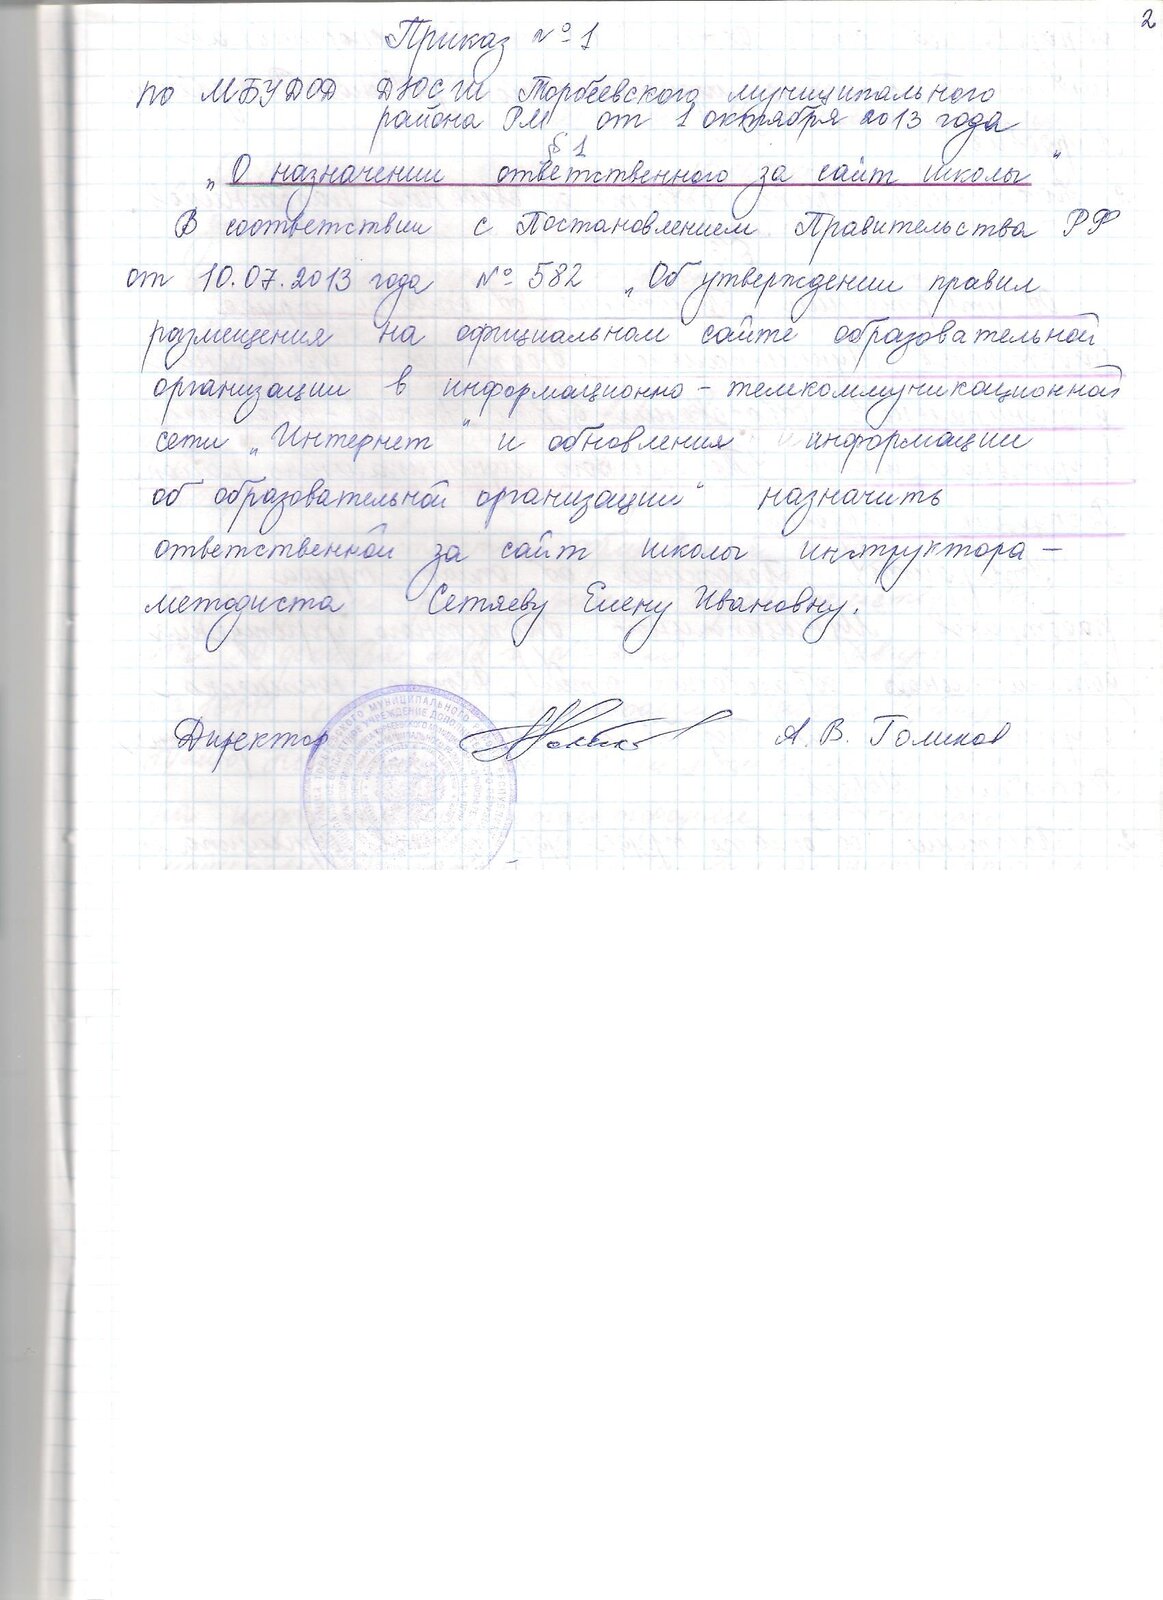 2
Приказ № 1
по МБУДОД ДЮСШ Торбеевского муниципального
района РМ от 1 октября 2013 года
§ 1
„О назначении ответственного за сайт школы"
В соответствии с Постановлением Правительства РФ
от 10.07.2013 года № 582 „Об утверждении правил
размещения на официальном сайте образовательной
организации в информационно-телекоммуникационной
сети „Интернет" и обновления информации
об образовательной организации" назначить
ответственной за сайт школы инструктора-
методиста Сетяеву Елену Ивановну.
Директор А. В. Голиков
МУНИЦИПАЛЬНОГО
УЧРЕЖДЕНИЕ